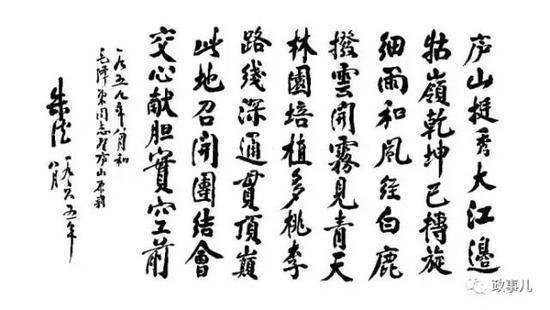 庐山挺秀大江邊
牯嶺乾坤已摶旋
细雨和風经白鹿
撥雲開霧見青天
林園培植多桃李
路线深通貫頂巔
此地召開團结會
交心献胆實空前
一九五九年八月和
毛泽东同志登庐山原韵
朱德
一九六五年
八月
政事儿